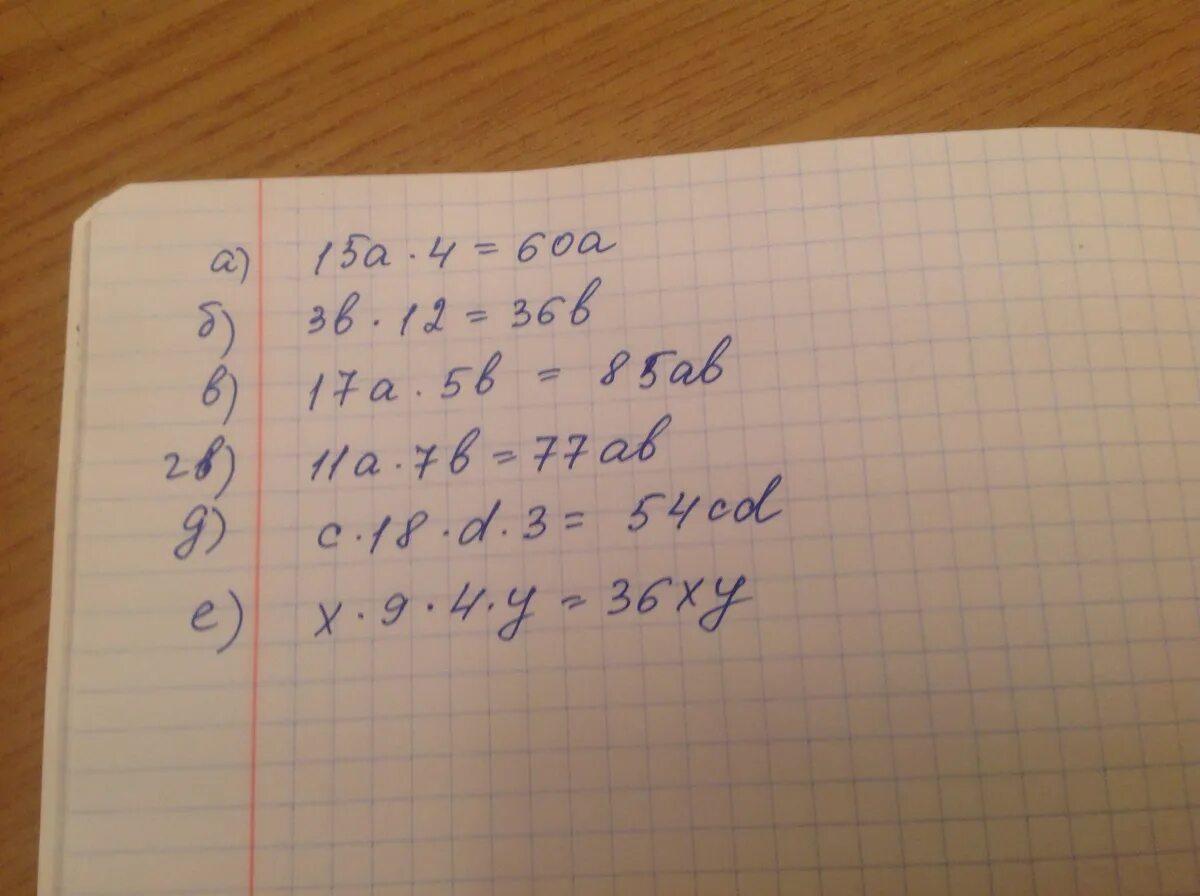 а) 15a · 4 = 60a
б) 3b · 12 = 36b
в) 17a · 5b = 85ab
г) 11a · 7b = 77ab
д) c · 18 · d · 3 = 54cd
е) x · 9 · 4 · y = 36xy